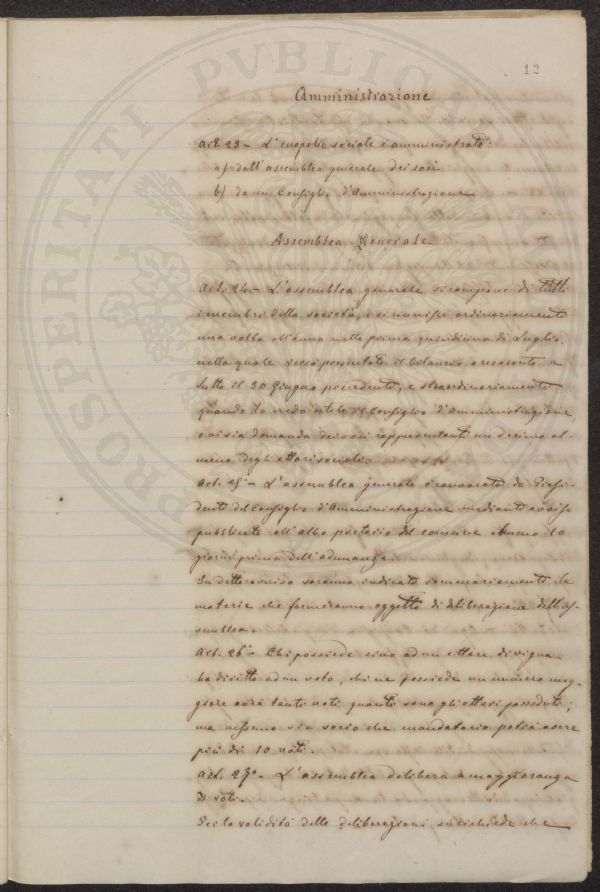 12
Amministrazione
Art. 23 - L'enopolio sociale è amministrato:
a) dall'assemblea generale dei soci
b) da un Consiglio d'Amministrazione
Assemblea Generale
Art. 24 - L'assemblea generale si compone di tutti
i membri della società, e si riunisce ordinariamente
una volta all'anno nella prima quindicina di Luglio,
nella quale verrà presentato il bilancio o resoconto a
tutto il 30 Giugno precedente, e straordinariamente
quando lo creda utile il Consiglio d'Amministrazione
o vi sia domanda dei soci rappresentanti un decimo al-
meno degli ettari sociali.
Art. 25 - L'assemblea generale è convocata dal Presi-
dente del Consiglio d'Amministrazione mediante avviso
pubblicato all'albo pretorio del comune almeno 10
giorni prima dell'adunanza.
In detto avviso saranno indicate sommariamente le
materie che formeranno oggetto di deliberazione dell'As-
semblea.
Art. 26 - Chi possiede sino ad un ettare di vigna
ha diritto ad un voto; chi ne possiede un numero mag-
giore avrà tanti voti quanti sono gli ettari posseduti;
ma nessuno sia socio che mandatario potrà avere
più di 10 voti.
Art. 27º - L'assemblea delibera a maggioranza
di voti.
Per la validità delle deliberazioni si richiede che
PROSPERITATI PVBLICAE